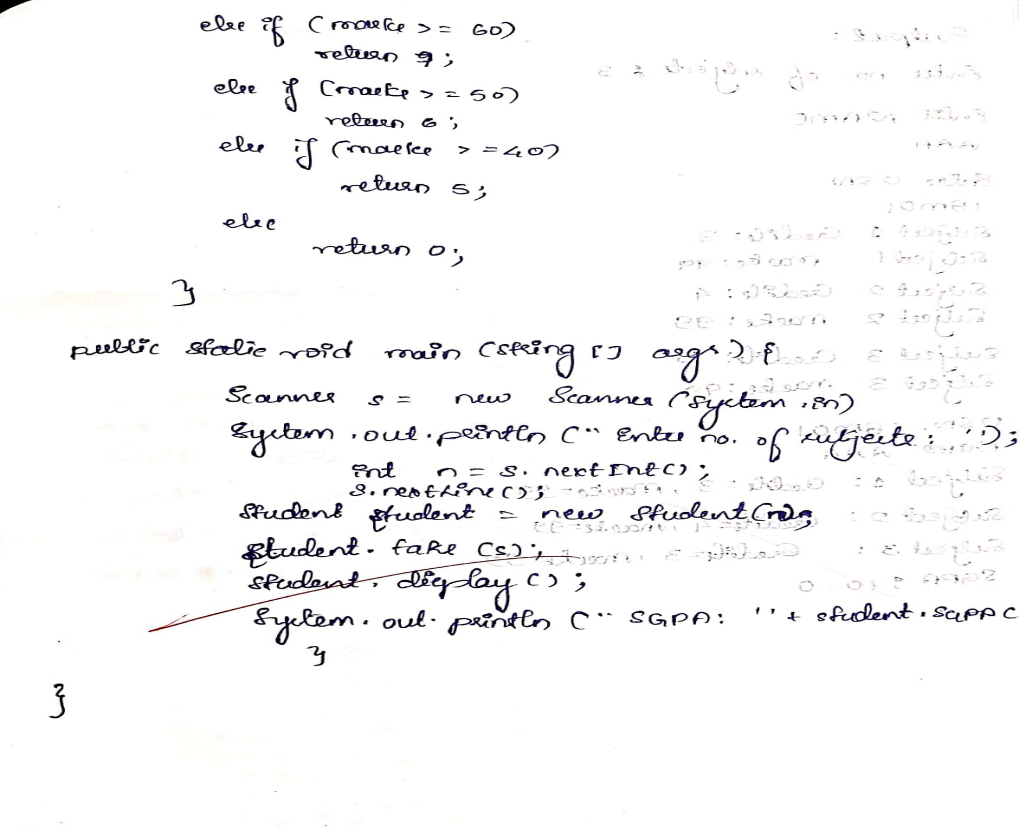 else if (marks >= 60)
return 7;
else if (marks >= 50)
return 6;
else if (marks >= 40)
return 5;
else
return 0;
}
public static void main (String [] args) {
Scanner s = new Scanner (System.in)
System.out.println (" Enter no. of subjects: ");
int n = s.nextInt();
s.nextLine();
Student student = new Student(n);
student.take (s);
student.display ();
System.out.println (" SGPA: " + student.SGPA (
}
}